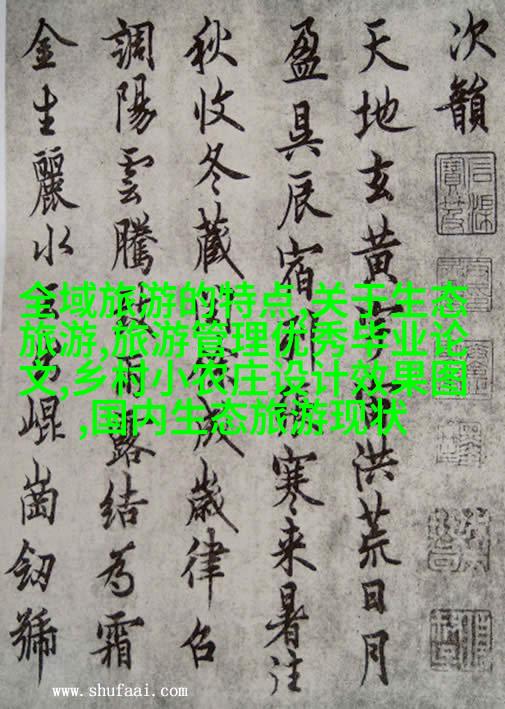 次韻
天地玄黃宇洪荒日月
盈昃辰宿寒来暑往
秋收冬藏成歲律吕
調陽雲騰雨露結為霜
金生麗水玉出崐崗劒號
全域旅游的特点,关于生态
旅游,旅游管理优秀毕业论
文,乡村小农庄设计效果图
,国内生态旅游现状
www.shufaai.com